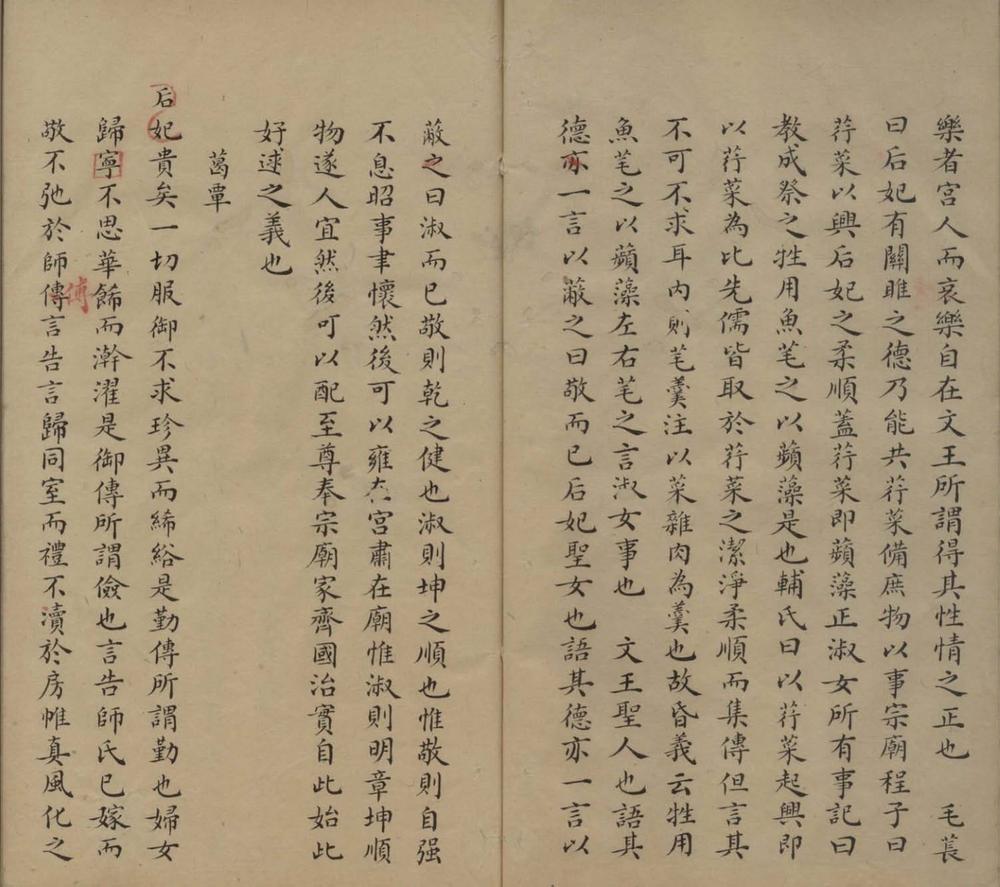 樂者宮人而哀樂自在文王所謂得其性情之正也　毛萇
曰后妃有關雎之德乃能共荇菜備庶物以事宗廟程子曰
荇菜以興后妃之柔順蓋荇菜即蘋藻正淑女所有事記曰
教成祭之牲用魚芼之以蘋藻是也輔氏曰以荇菜起興即
以荇菜為比先儒皆取於荇菜之潔淨柔順而集傳但言其
不可不求耳內則芼羹注以菜雜肉為羹也故昏義云牲用
魚芼之以蘋藻左右芼之言淑女事也　文王聖人也語其
德亦一言以蔽之曰敬而已后妃聖女也語其德亦一言以
蔽之曰淑而已敬則乾之健也淑則坤之順也惟敬則自强
不息昭事聿懷然後可以雍在宮肅在廟惟淑則明章坤順
物遂人宜然後可以配至尊奉宗廟家齊國治實自此始此
好逑之義也
葛覃
后妃貴矣一切服御不求珍異而絺綌是勤傳所謂勤也婦女
歸寧不思華餙而澣濯是御傳所謂儉也言告師氏已嫁而
敬不弛於師傳言告言歸同室而禮不瀆於房帷真風化之
傅